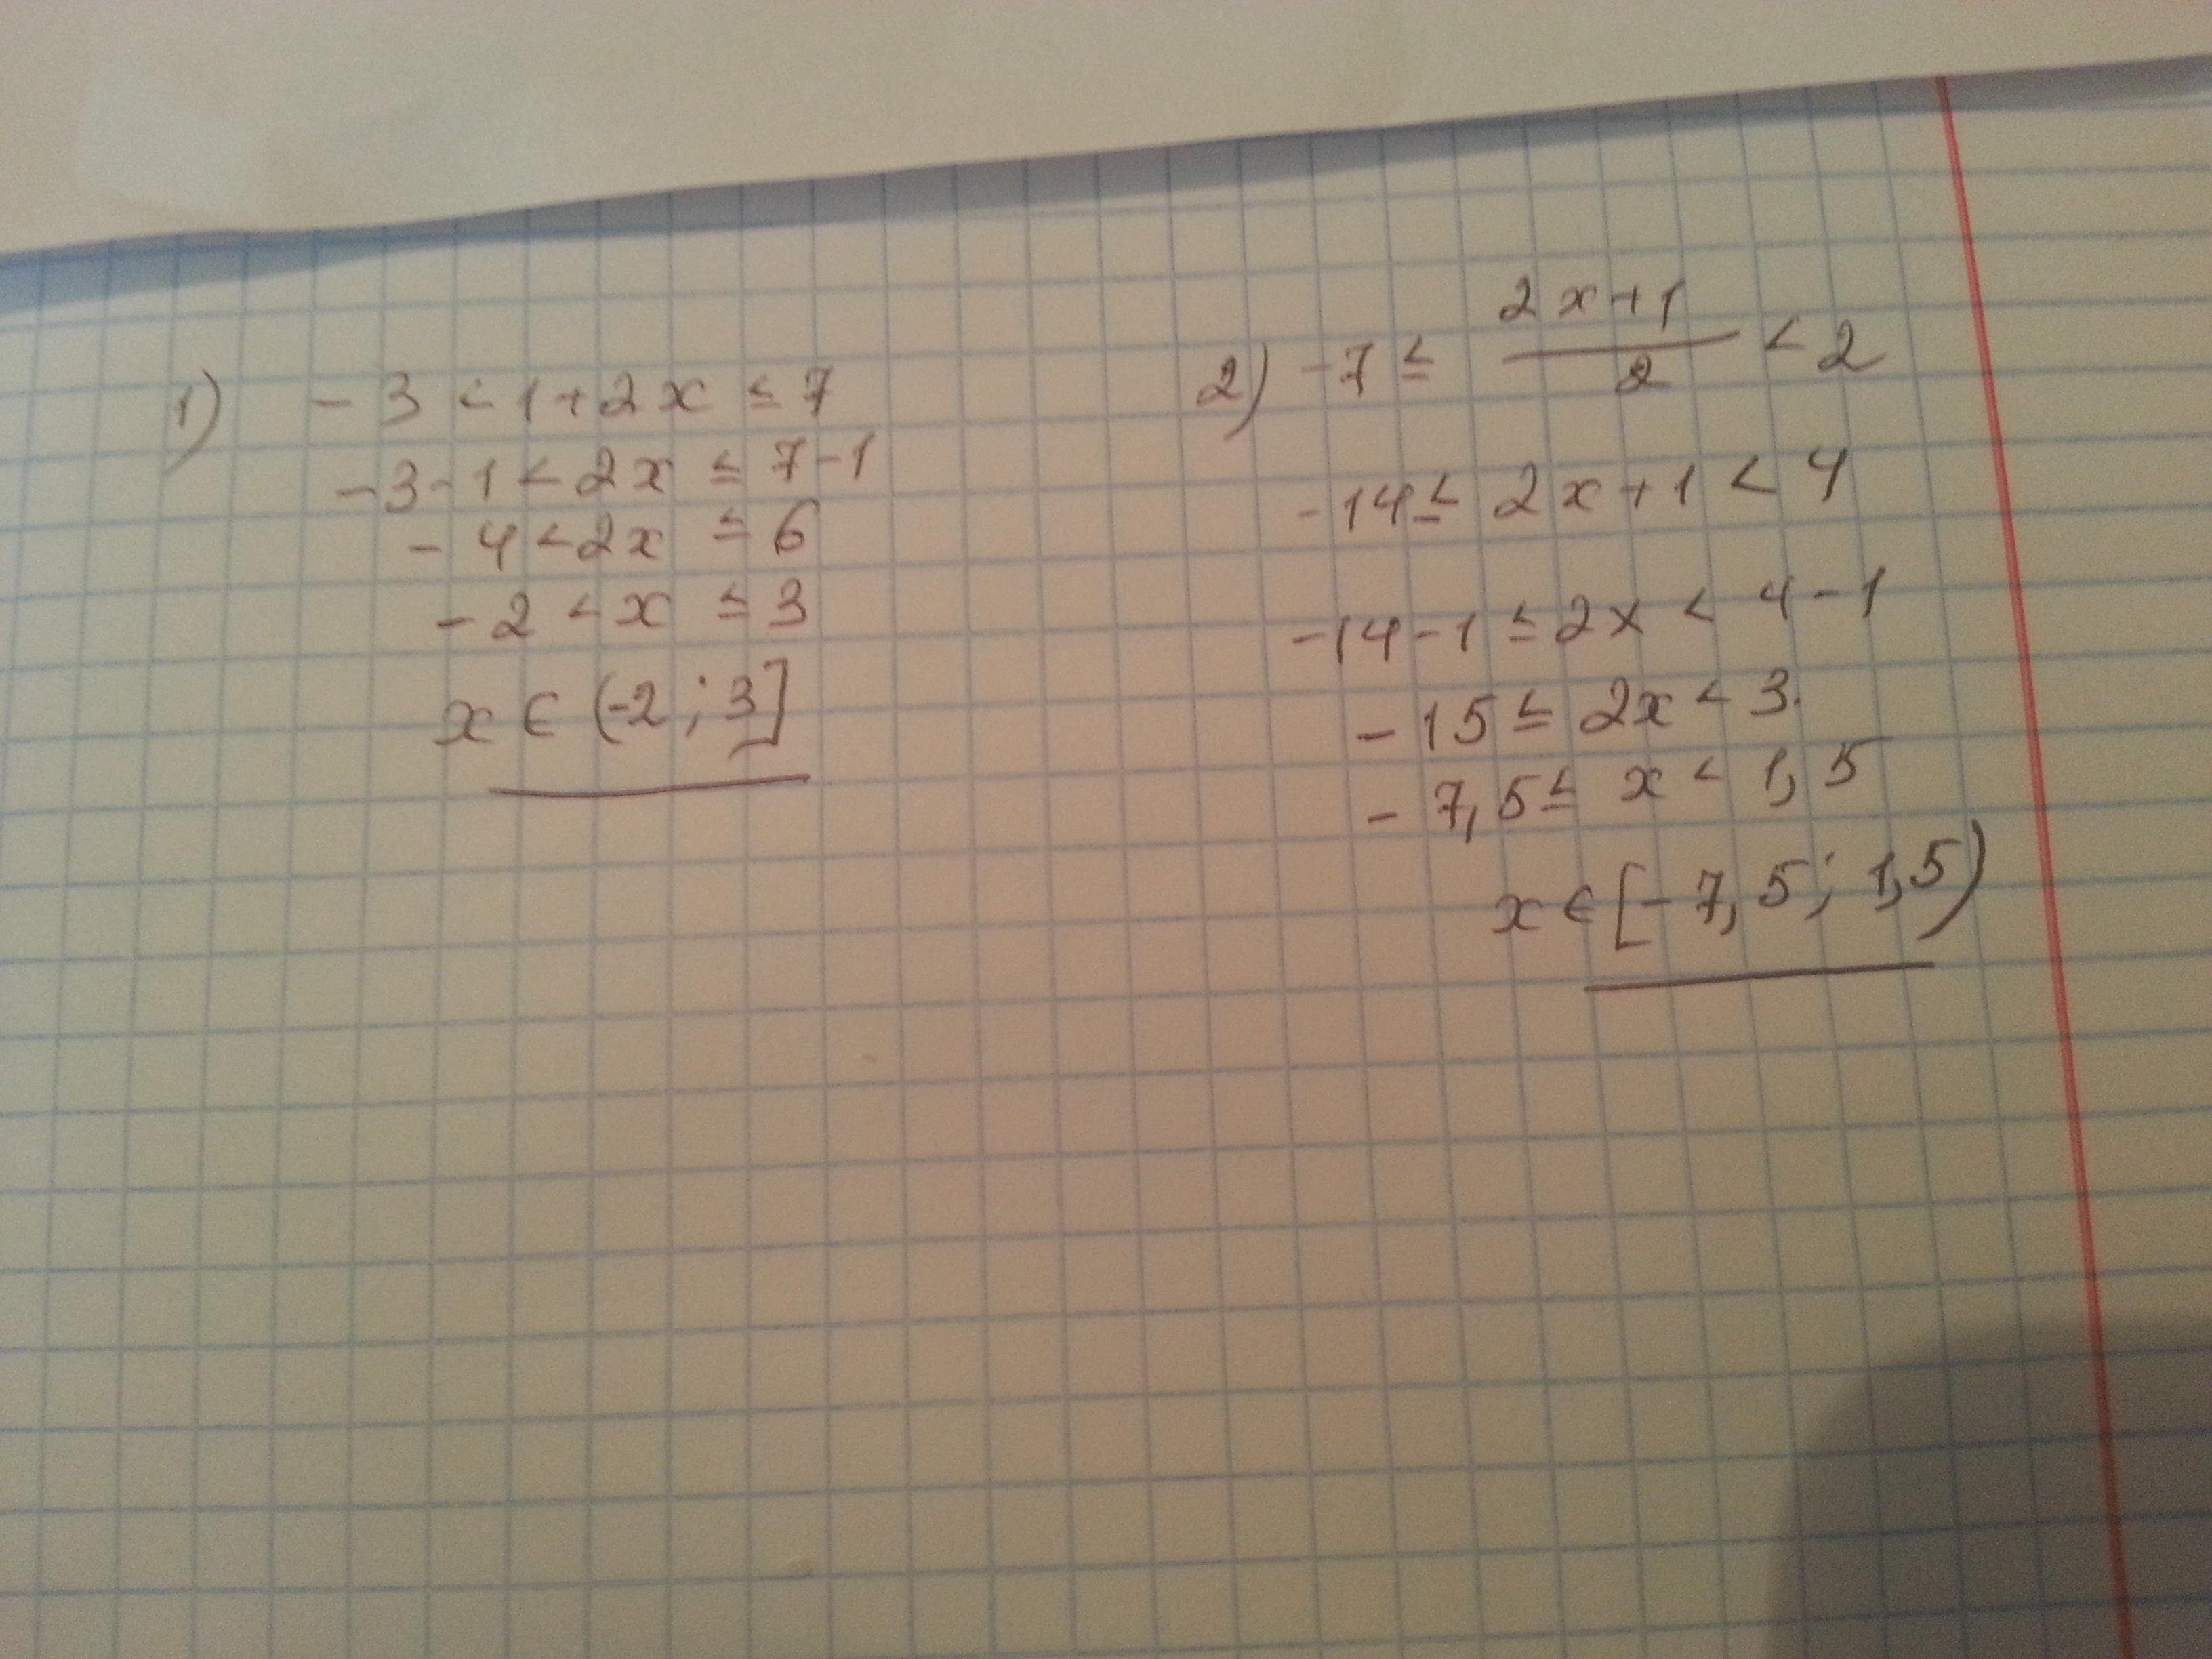 1) -3 < 1 + 2x ≤ 7
-3 - 1 < 2x ≤ 7 - 1
-4 < 2x ≤ 6
-2 < x ≤ 3
x ∈ (-2 ; 3]
2) -7 ≤ (2x+1)/2 < 2
-14 ≤ 2x + 1 < 4
-14 - 1 ≤ 2x < 4 - 1
-15 ≤ 2x < 3.
-7,5 ≤ x < 1,5
x ∈ [-7,5 ; 1,5)